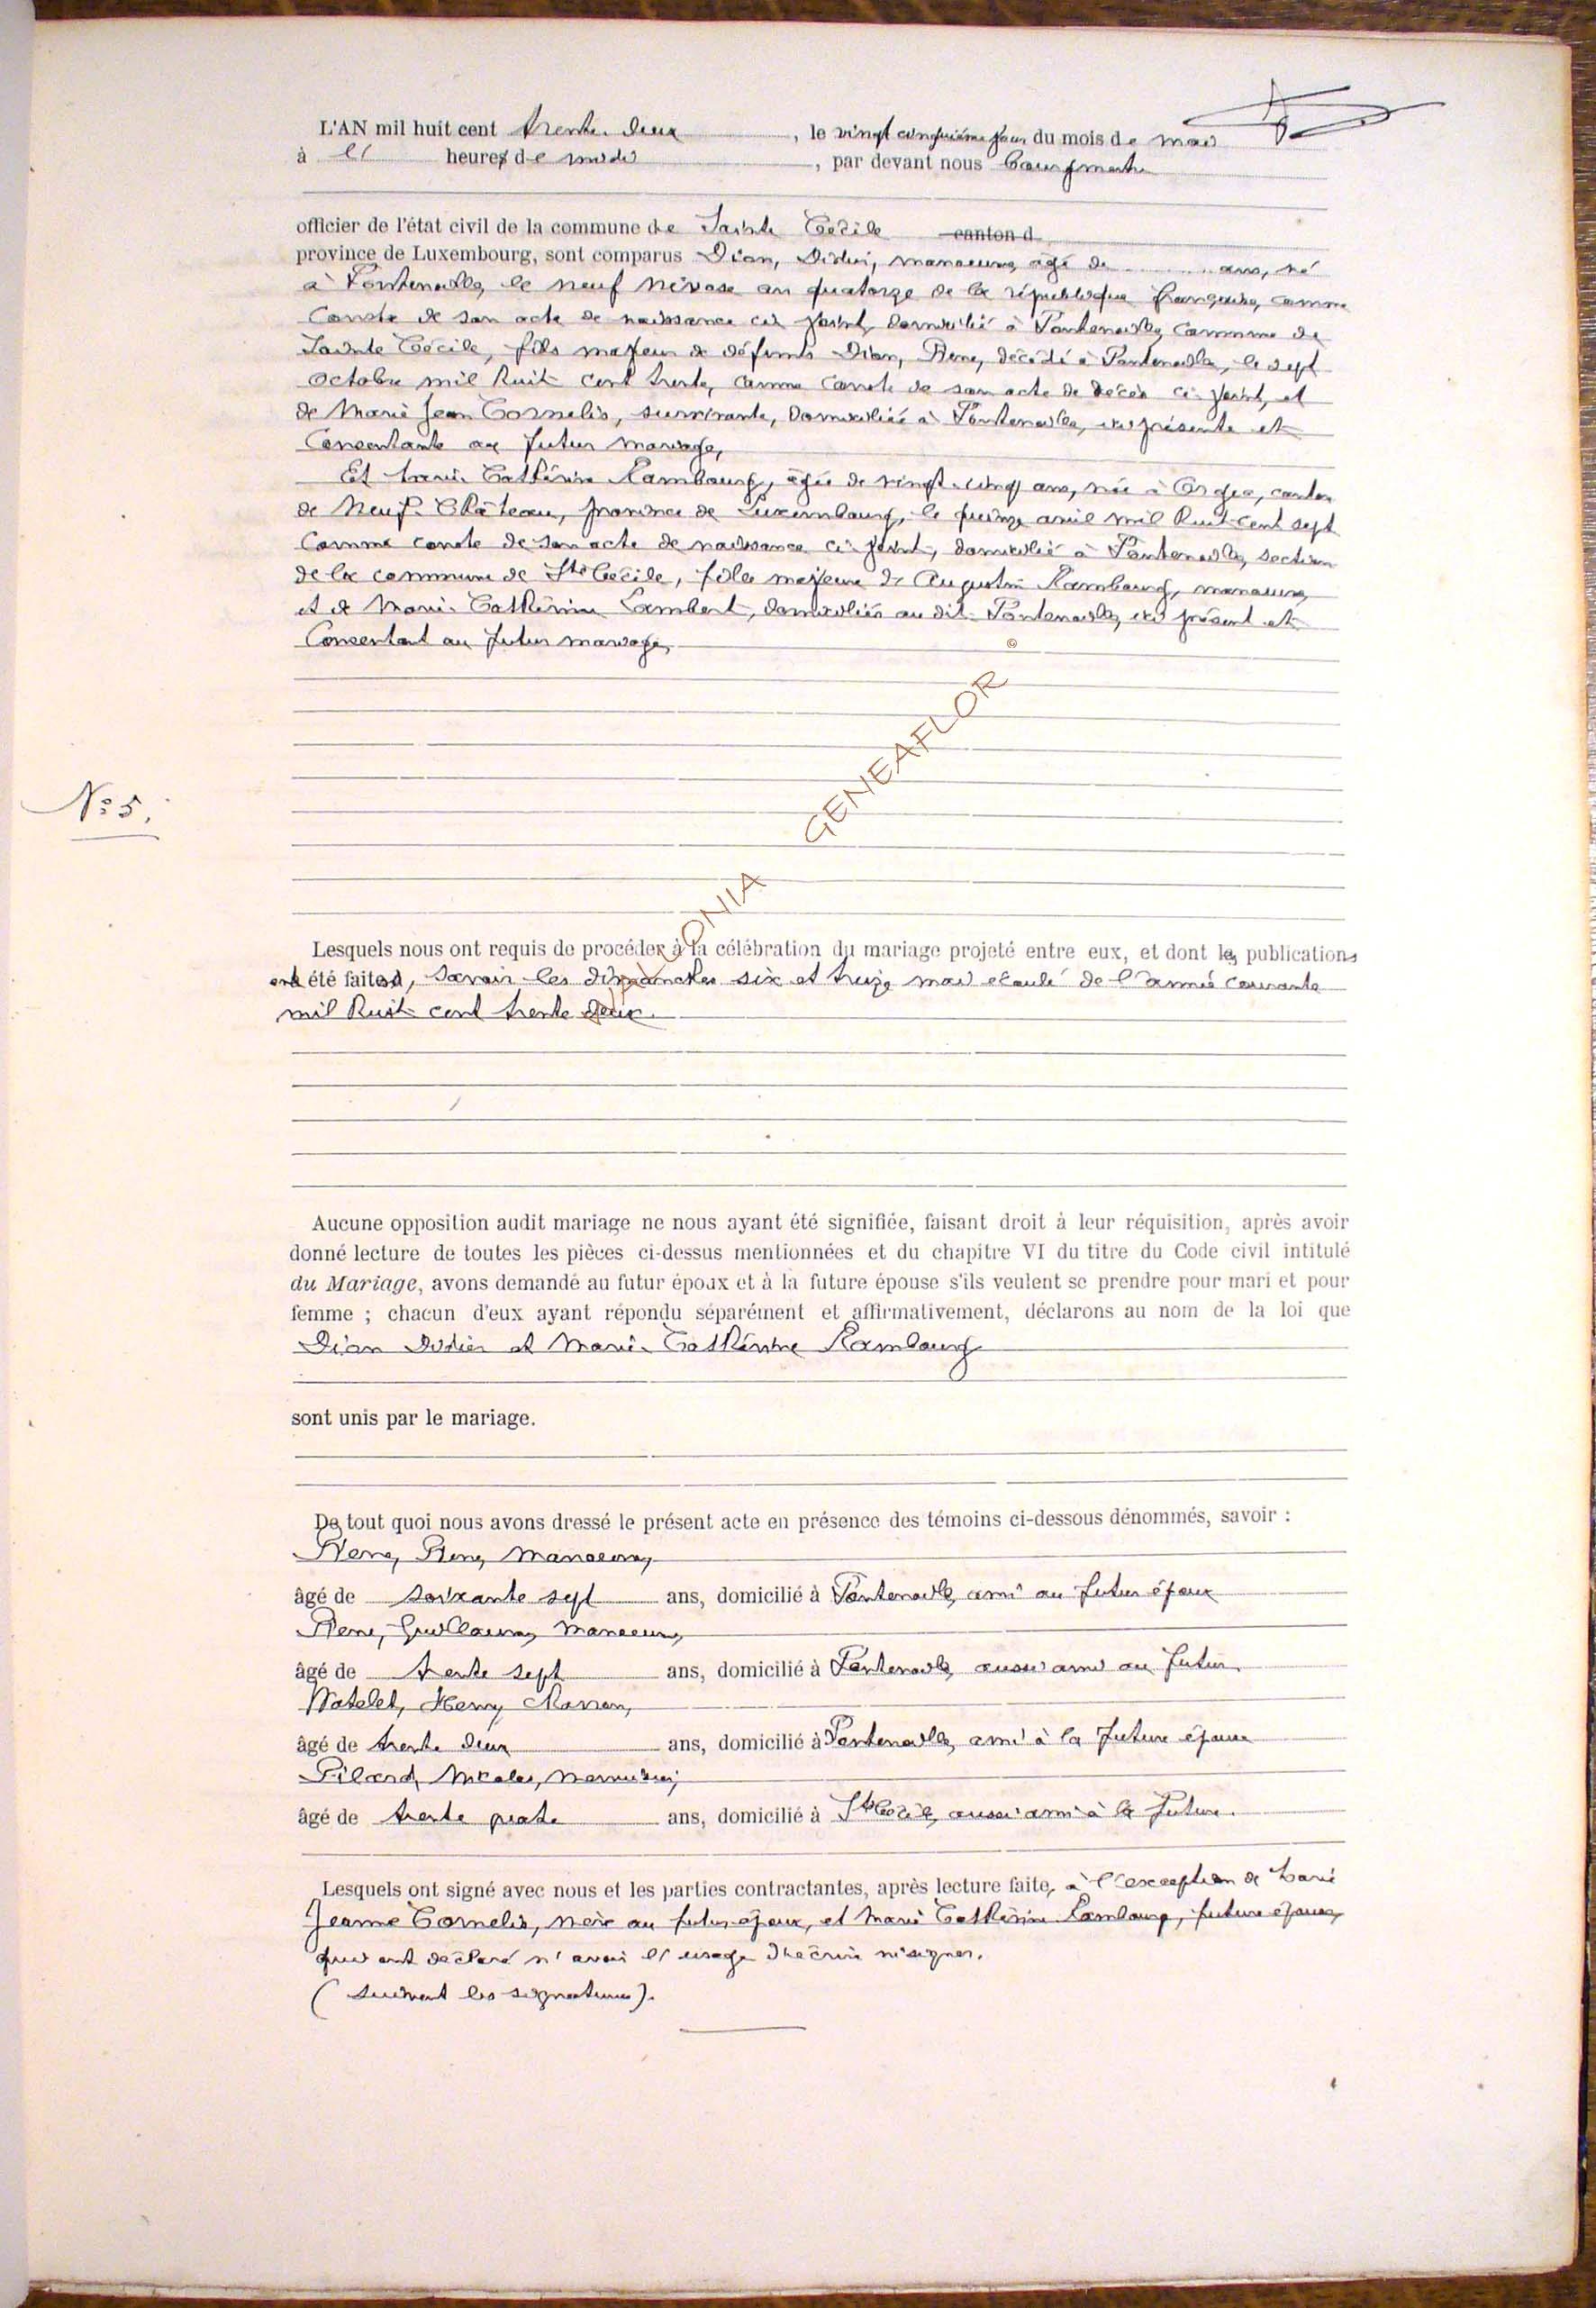 L'AN mil huit cent trente deux, le vingt cinquième jour du mois de mai
à heures de midi, par devant nous Bourgmestre
officier de l'état civil de la commune de Sainte Cécile canton d
province de Luxembourg, sont comparus Dion, Didier, manoeuvre, âgé de ........ ans, né
à Fontenoille, le neuf Nivose an quatorze de la république française, comme
Conste de son acte de naissance ci joint, domicilié à Fontenoille, Commune de
Sainte Cécile, fils majeur de défunts Dion, Pierre, décédé à Fontenoille, le sept
Octobre mil huit cent trente, comme Conste de son acte de décès ci-joint, et
de Marie Jean Cornelis, survivante, domiciliée à Fontenoille, ici présente et
Consentante au futur mariage,
Et Marie Cathérine Rambourg, âgée de vingt-cinq ans, née à Orgeo, canton
de Neuf-Château, province de Luxembourg, le quinze avril mil huit-cent sept
Comme conste de son acte de naissance ci-joint, domicilié à Fontenoille, section
de la commune de Ste Cécile, fille majeure de Augustin Rambourg, manoeuvre,
et de Marie-Cathérine Lambert, domiciliés au dit Fontenoille, ici présent et
Consentant au futur mariage,
N° 5.
WALLONIA GENEAFLOR ©
Lesquels nous ont requis de procéder à la célébration du mariage projeté entre eux, et dont les publications
ont été faites, savoir les dimanches six et treize mai écoulé de l'année courante
mil huit cent trente deux.
Aucune opposition audit mariage ne nous ayant été signifiée, faisant droit à leur réquisition, après avoir
donné lecture de toutes les pièces ci-dessus mentionnées et du chapitre VI du titre du Code civil intitulé
du Mariage, avons demandé au futur époux et à la future épouse s'ils veulent se prendre pour mari et pour
femme ; chacun d'eux ayant répondu séparément et affirmativement, déclarons au nom de la loi que
Dion Didier et Marie-Cathérine Rambourg
sont unis par le mariage.
De tout quoi nous avons dressé le présent acte en présence des témoins ci-dessous dénommés, savoir :
Pierre, manoeuvre,
âgé de soixante sept ans, domicilié à Fontenoille, ami au futur époux
Pierre, Guillaume, manoeuvre,
âgé de trente sept ans, domicilié à Fontenoille, aussi ami au futur,
Watelet, Henry,
âgé de trente deux ans, domicilié à Fontenoille, ami à la future épouse
Pilard, Nicolas, menuisier,
âgé de trente quatre ans, domicilié à Ste Cécile, aussi ami à la future.
Lesquels ont signé avec nous et les parties contractantes, après lecture faite, à l'exception de Marie
Jeanne Cornelis, mère au futur époux, et Marie Cathérine Rambourg, future épouse,
qui ont déclaré n'avoir l'usage d'écrire ni signer.
(suivent les signatures).